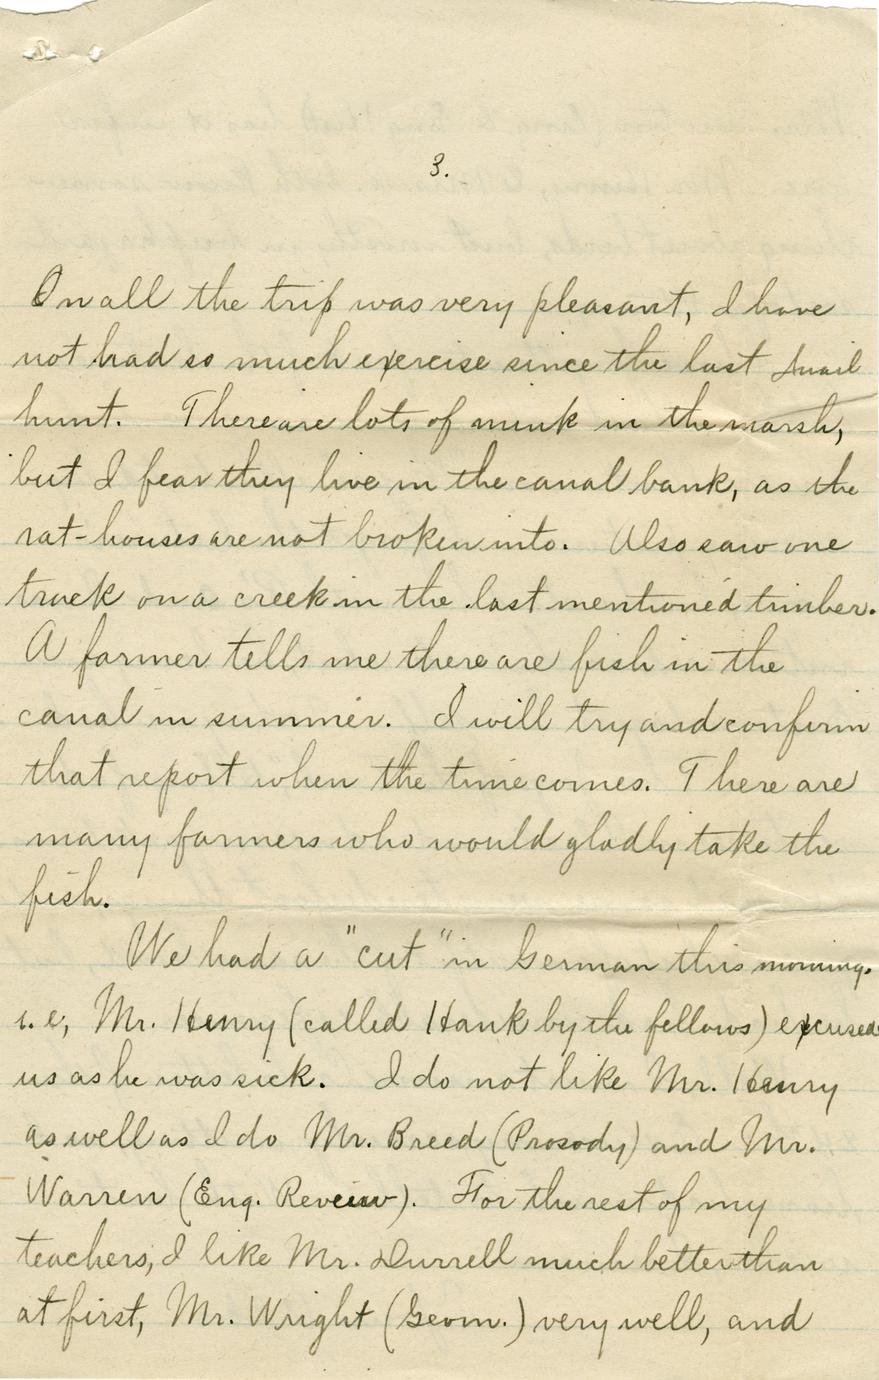 3.
In all the trip was very pleasant, I have
not had so much exercise since the last Snail
hunt. There are lots of mink in the marsh,
but I fear they live in the canal bank, as the
rat-houses are not broken into. Also saw one
track on a creek in the last mentioned timber.
A farmer tells me there are fish in the
canal in summer. I will try and confirm
that report when the time comes. There are
many farmers who would gladly take the
fish.
We had a "cut" in German this morning.
i.e, Mr. Henry (called Hank by the fellows) excused
us as he was sick. I do not like Mr. Henry
as well as I do Mr. Breed (Prosody) and Mr.
Warren (Eng. Reveiw). For the rest of my
teachers, I like Mr. Durrell much better than
at first, Mr. Wright (Geom.) very well, and